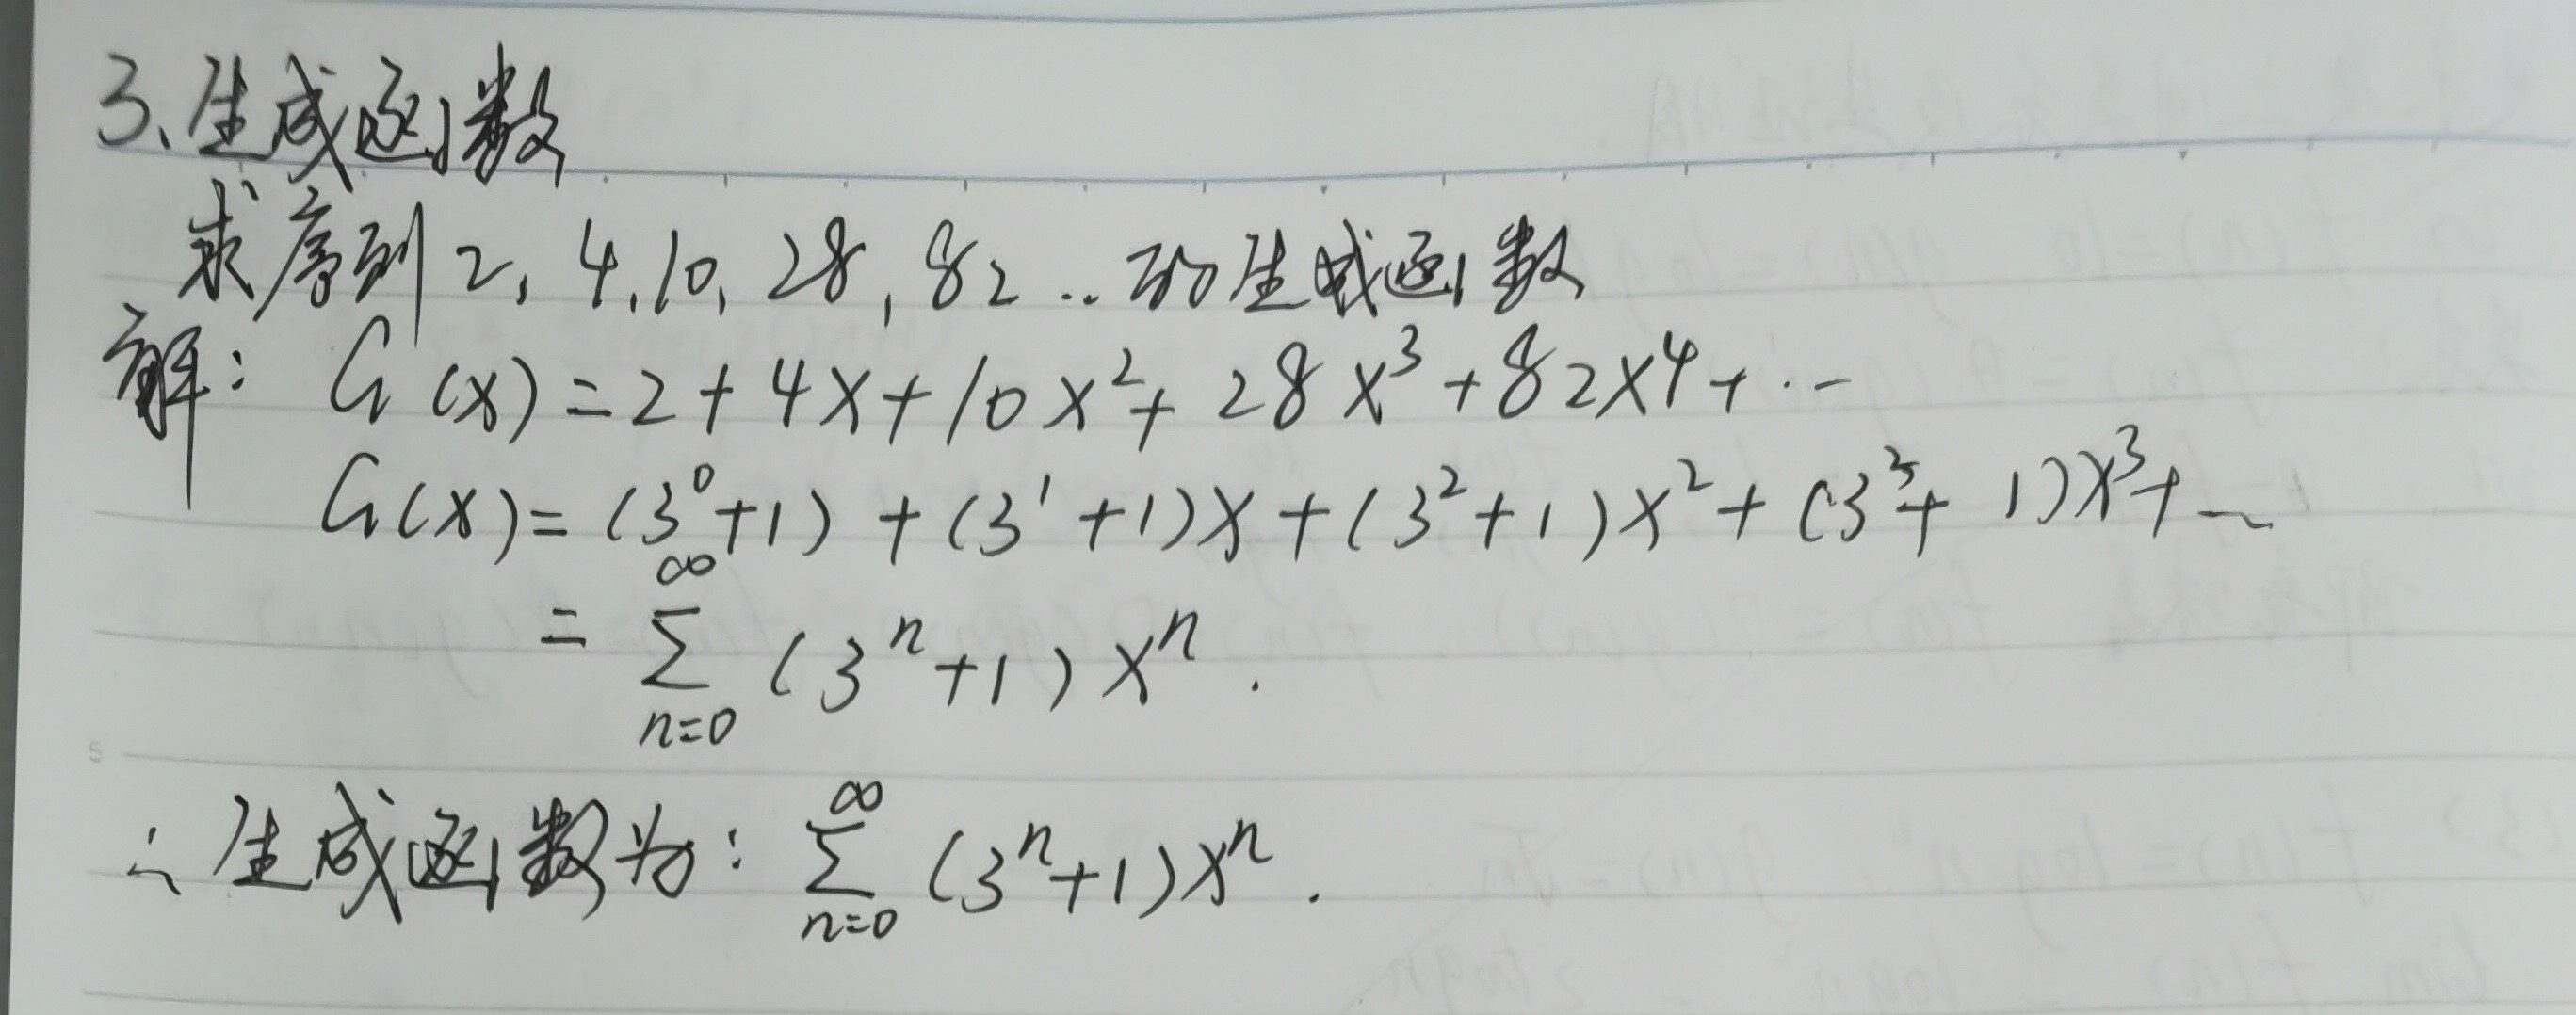 3、生成函数
求序列2, 4, 10, 28, 82 … 的生成函数
解: G(x) = 2 + 4x + 10x² + 28x³ + 82x⁴ + …
G(x) = (3⁰+1) + (3¹+1)x + (3²+1)x² + (3³+1)x³ + …
= ∑_{n=0}^{∞} (3ⁿ+1)xⁿ.
5
∴ 生成函数为: ∑_{n=0}^{∞} (3ⁿ+1)xⁿ.